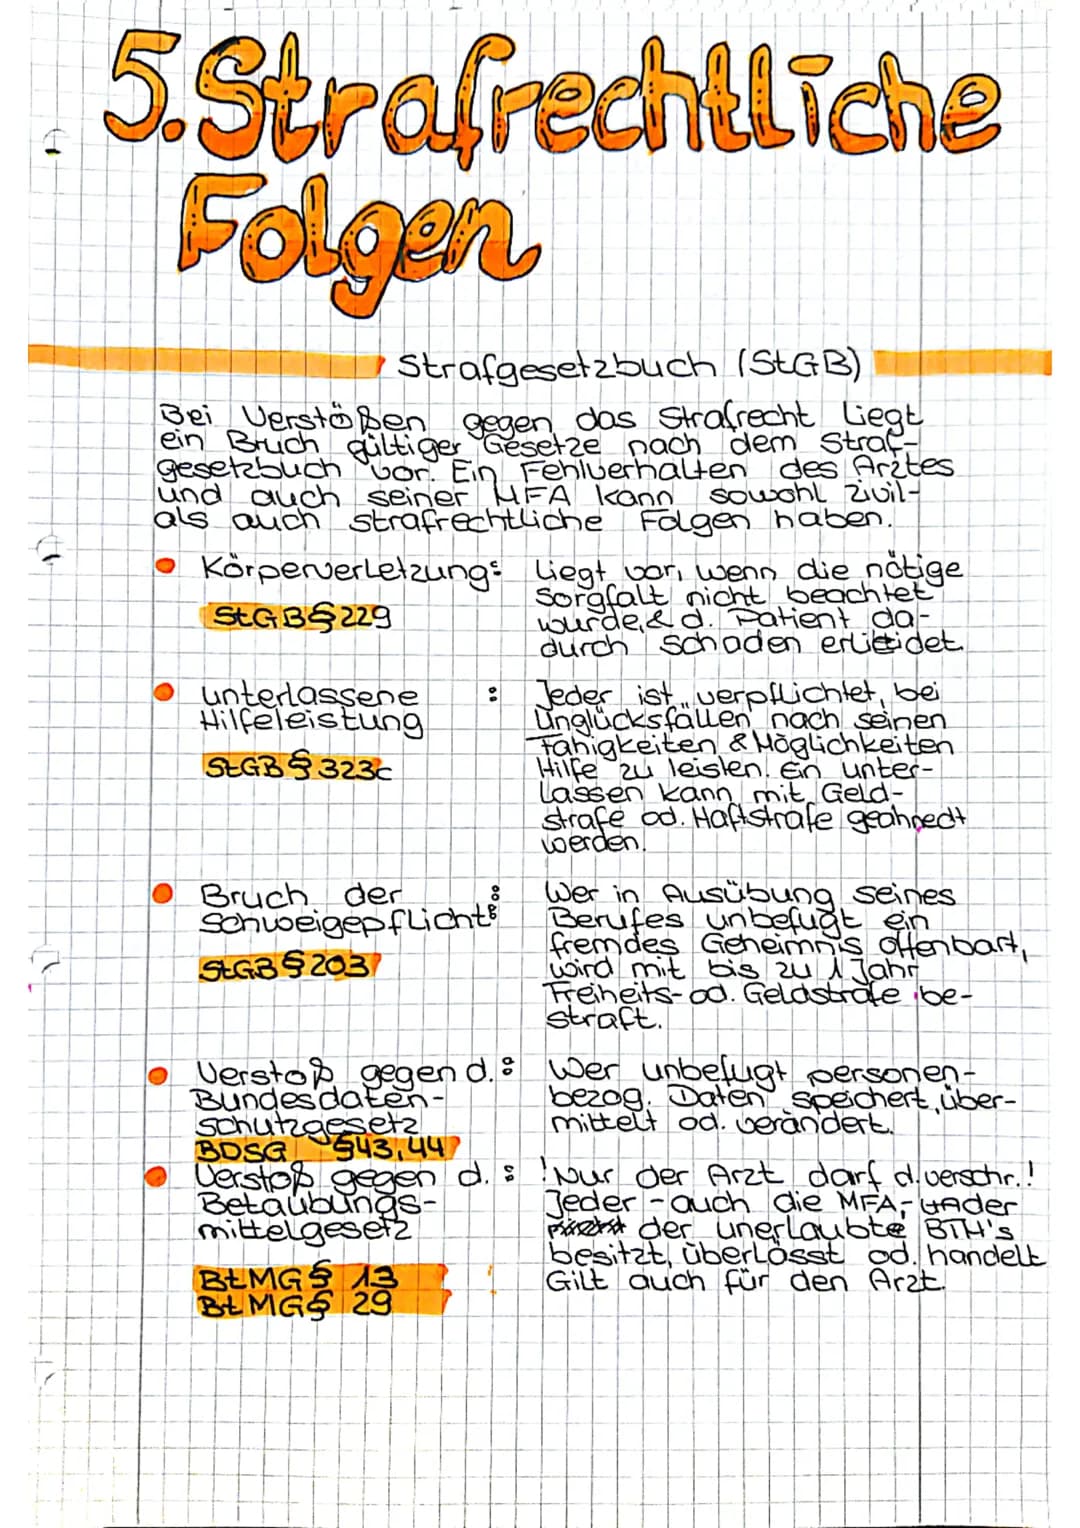 5. Strafrechtliche
Folgen
Strafgesetzbuch (StGB)
Bei Verstößen gegen das Strafrecht liegt
ein Bruch gültiger Gesetze nach dem Straf-
gesetzbuch vor. Ein Fehlverhalten des Arztes
und auch seiner MFA kann sowohl zivil-
als auch strafrechtliche Folgen haben.
Körperverletzung: Liegt vor, wenn die nötige
Sorgfalt nicht beachtet
StGB § 229 wurde, & d. Patient da-
durch Schaden erleidet.
unterlassene : Jeder ist verpflichtet, bei
Hilfeleistung Unglücksfällen nach seinen
Fähigkeiten & Möglichkeiten
StGB § 323c Hilfe zu leisten. Ein unter-
lassen kann mit Geld-
strafe od. Haftstrafe geahnedt
werden.
Bruch der : Wer in Ausübung seines
Schweigepflicht: Berufes unbefugt ein
fremdes Geheimnis offenbart,
StGB § 203 wird mit bis zu 1 Jahr
Freiheits- od. Geldstrafe be-
straft.
Verstoß gegen d. : Wer unbefugt personen-
Bundesdaten- bezog. Daten speichert, über-
schutzgesetz mittelt od. verändert.
BDSG §43,44
Verstoß gegen d. : !Nur der Arzt darf d. verschr.!
Betäubungs- Jeder - auch die MFA,-
mittelgesetz der unerlaubte BTM's
besitzt, überlässt od. handelt
BtMG § 13 Gilt auch für den Arzt.
BtMG § 29